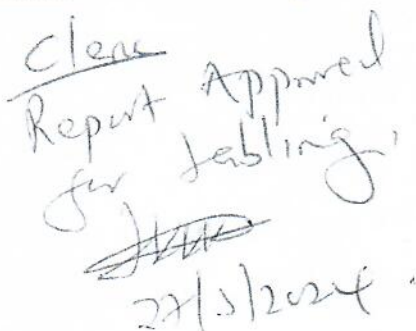 Clerk
Report Approved
for tabling.
27/3/2024